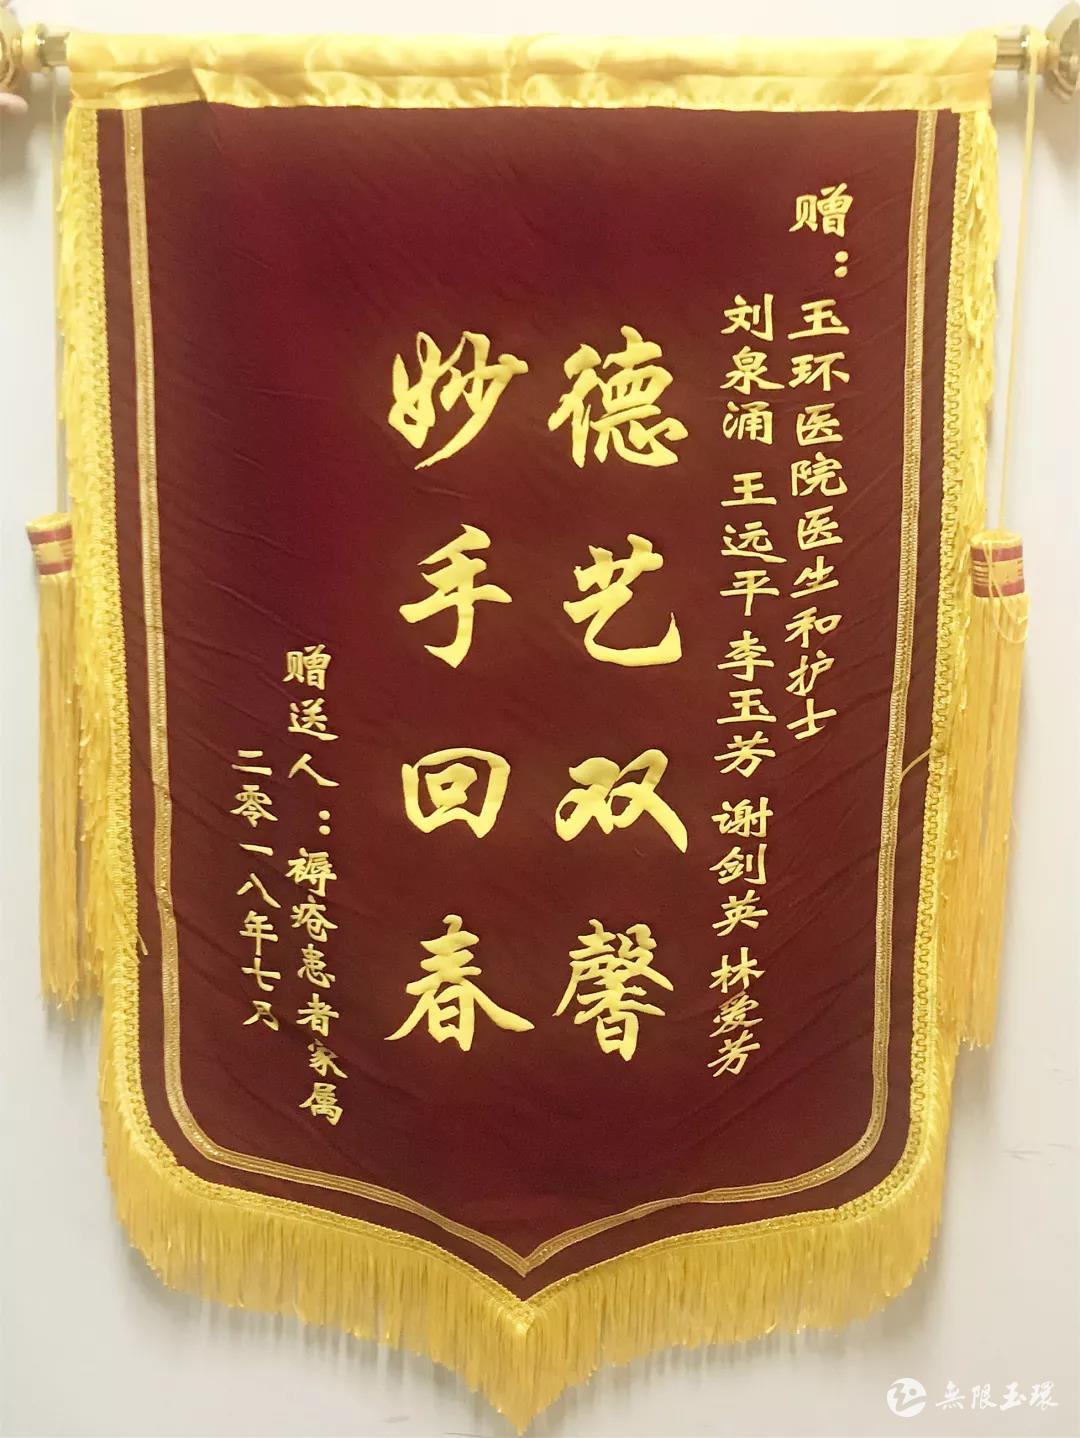 赠：玉环医院医生和护士
刘泉涌 王远平 李玉芳 谢剑英 林爱芳
德艺双馨
妙手回春
赠送人：褥疮患者家属
二零一八年七月
無限玉環